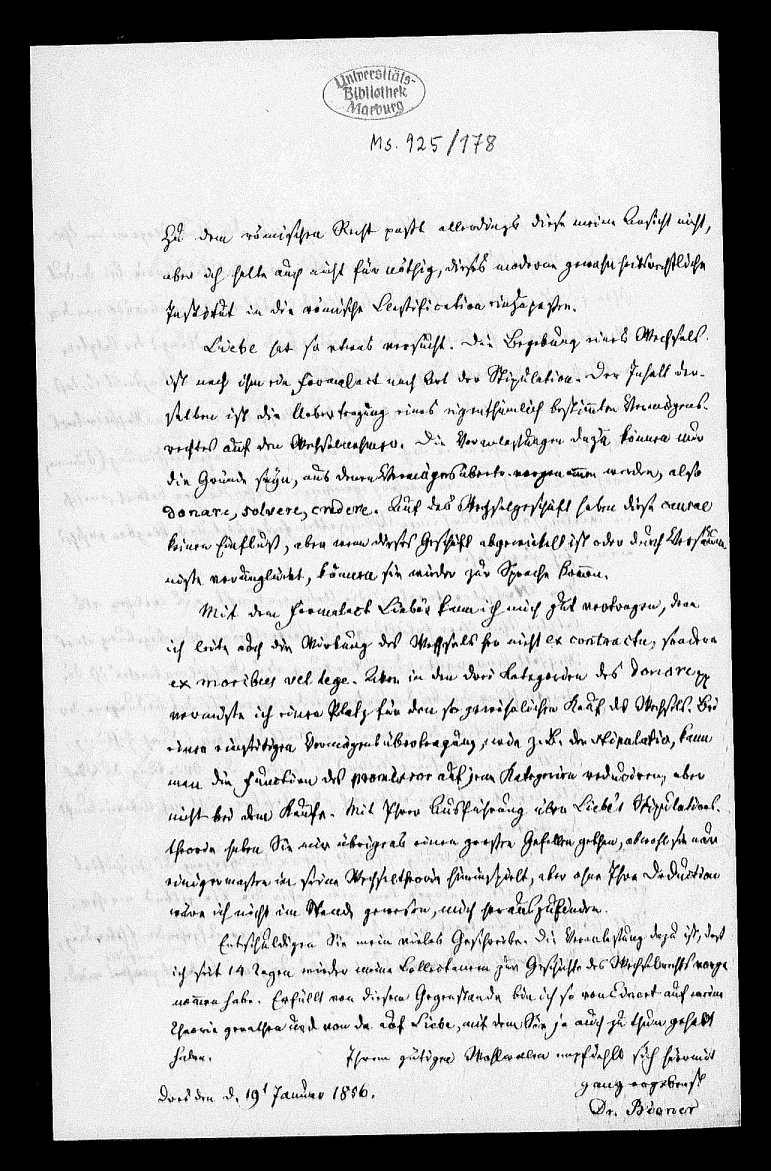 Universitäts-
Bibliothek
Marburg
Ms. 925/178
Zu dem römischen Recht paßt allerdings diese meine Ansicht nicht,
aber ich halte auch nicht für nöthig, dieses moderne gewohnheitsrechtliche
Institut in die römische Classification einzupassen.
Liebe hat so etwas versucht. Die Begebung eines Wechsels
ist nach ihm ein Formalact nach Art der Stipulation. Der Inhalt der-
selben ist die Uebertragung eines eigenthümlich bestimmten Vermögens-
rechtes auf den Wechselnehmer. Die Veranlassungen dazu können nur
die Gründe seyn, aus denen Vermögen überh. vorgenommen werden, also
donare, solvere, credere. Auf das Wechselgeschäft haben diese causae
keinen Einfluß, aber wenn dieses Geschäft abgewickelt ist oder durch Versäum
nisse verunglückt, können sie wieder zur Sprache kommen.
Mit dem Formalact Liebe's kann ich mich gut vertragen, denn
ich leite auch die Wirkung des Wechsels her nicht ex contractu, sondern
ex moribus vel lege. Aber in den drei Kategorien des donare pp
vermißte ich einen Platz für den so gewöhnlichen Kauf des Wechsels. Bei
einer einseitigen Vermögensübertragung, wie z. B. der stipulatio, kann
man die Function des promissor auf jene Kategorien reduciren, aber
nicht bei dem Kaufe. Mit Ihrer Ausführung über Liebe's Stipulations-
theorie haben Sie mir übrigens einen großen Gefallen gethan, obwohl sie nur
einigermaßen in seine Wechseltheorie hineinspielt, aber ohne Ihre Deduction
wäre ich nicht im Stande gewesen, mich herauszufinden.
Entschuldigen Sie mein vieles Geschreibe. Die Veranlassung dazu ist, daß
ich seit 14 Tagen wieder meine Collectaneen zur Geschichte des Wechselrechts vorge
nommen habe. Erfüllt von diesem Gegenstande bin ich so von Einert auf meine
Theorie gerathen und von da auf Liebe, mit dem Sie ja auch zu thun gehabt
haben.
Ihrem gütigen Wohlwollen empfiehlt sich hiermit
ganz ergebenst
Dresden d. 19t Januar 1856.
Dr. Biener